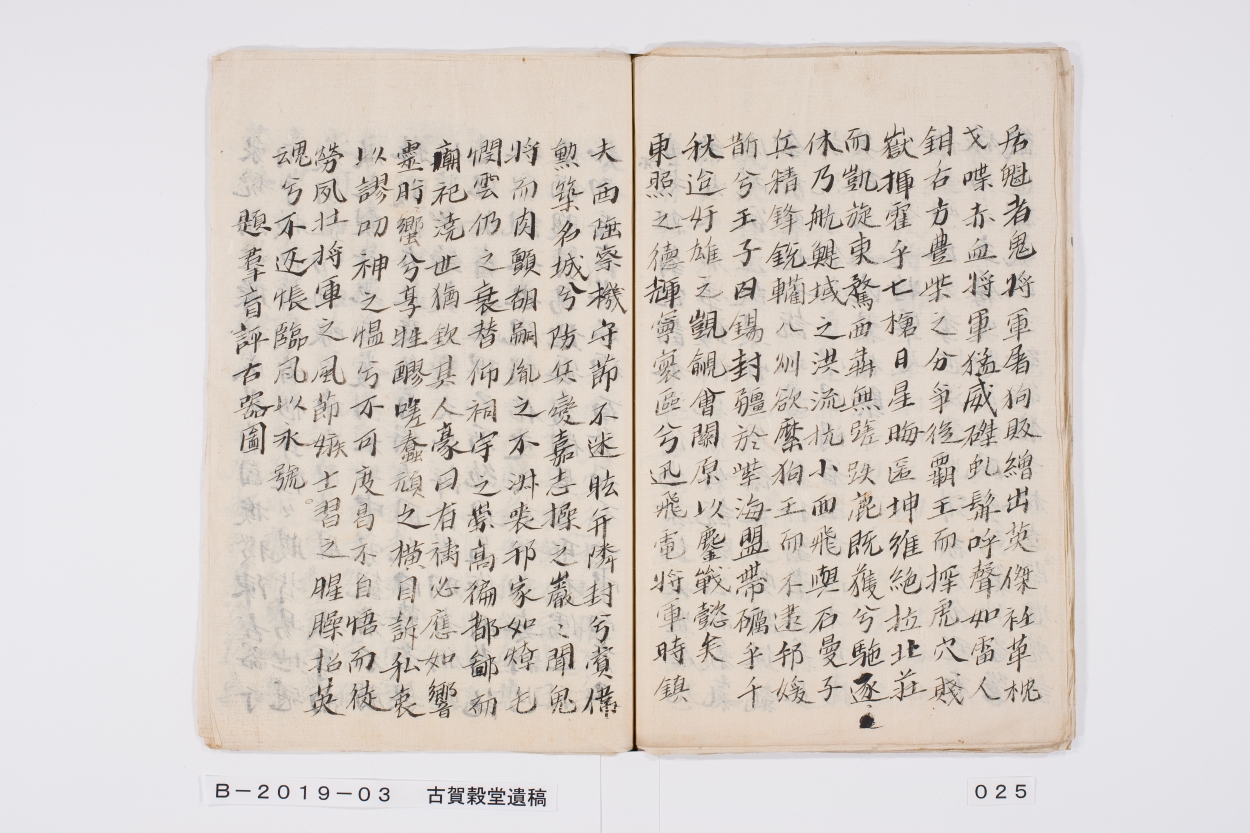 居魁者鬼将軍屠狗販繒出英傑衽革枕
戈喋赤血将軍猛威磔虬髯呼聲如雷人
鉗右方豊柴之分争後霸王而探虎穴賤
嶽揮霍乎七槍日星晦匿坤維絶拉北莊
而凱旋東驁西犇無蹉跌鹿既獲兮馳逐
休乃航鯷域之洪流抗小西飛與石曼子
兵精鋒鋭轥八州欲縻狗王而不逮邦媛
斮兮王子囚錫封疆於柴海盟帶礪乎千
秋迨奸雄之覬覦會關原以鏖戰懿矣
東照之德輝寧寰區兮迅飛電将軍時鎮
夫西陲察機守節不迷眩弁隣封兮賞
勲築名城兮防兵變嘉志操之巖之聞鬼
将而肉顫胡嗣胤之不淋喪邦家如燎毛
憫雲仍之衰替仰祠宇之崇高徧都鄙而
廟祀澆世猶欽其人豪曰有禱必應如響
靈肹蠁兮享牲醪嗟蠢頑之横目訴私衷
以謬叨神之愠兮不可度曷不自悟而徒
勞夙壯将軍之風節嫉士習之腥臊招英
魂兮不返悵臨風以永號
題羣盲評古器圖
B－2019－03　古賀穀堂遺稿
025